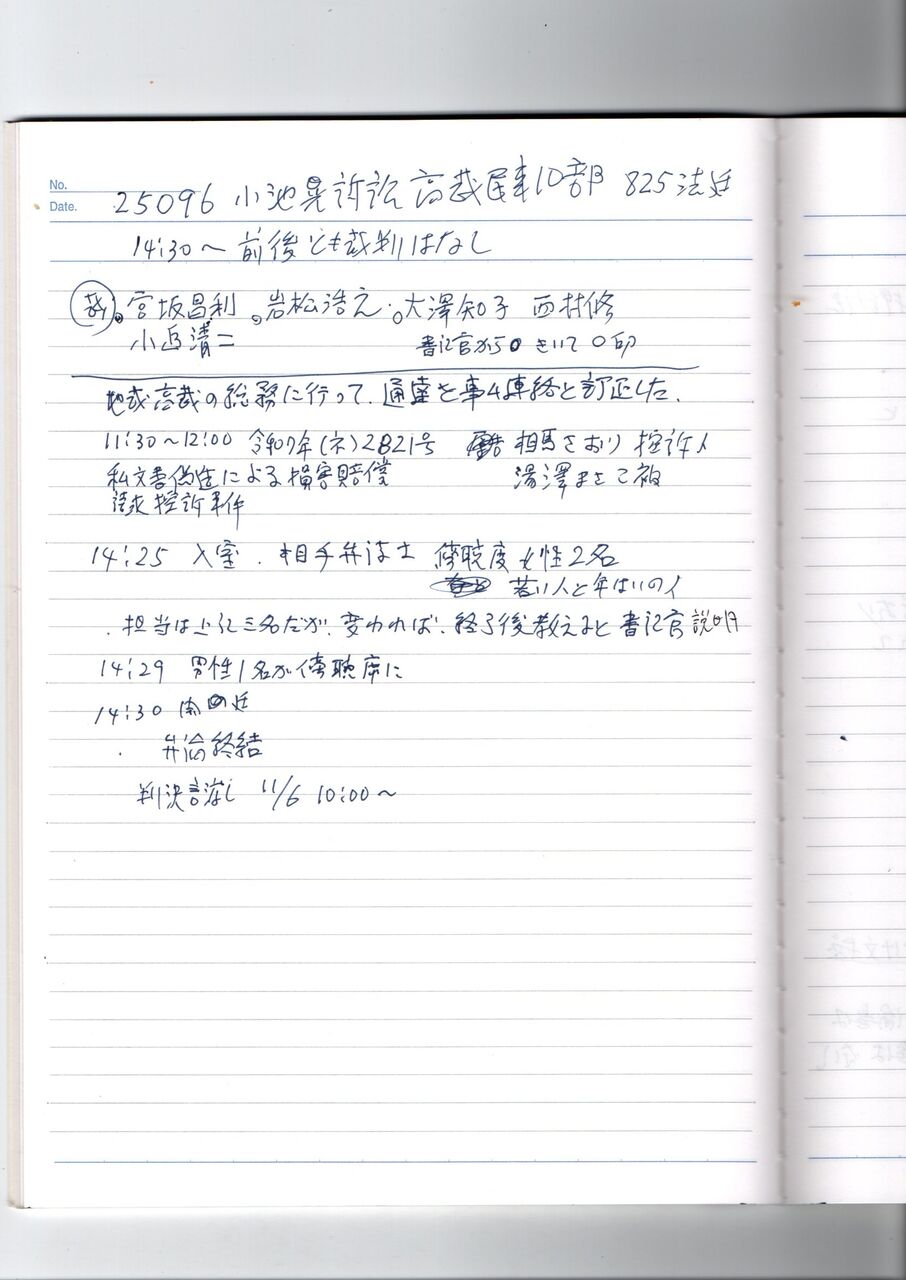 No.
Date.
25096 小池晃訴訟 高裁民事10部 825法廷
14:30～ 前後とも裁判はなし
裁 。宮坂昌利 。岩松浩之・。大澤知子 西村修
小 清二
書記官から きいて○印
地裁高裁の総務に行って、通達を事ム連絡と訂正した.
11:30～12:00 令和7年(ネ)2821号 相馬さおり 控訴人
私文書偽造による損害賠償 湯澤まさこ被
請求控訴事件
14:25 入室. 相手弁護士 傍聴席 女性2名
若い人と年ぱいの人
. 担当は上記三名だが、変われば、終了後教えると 書記官 説明
14:29 男性1名が傍聴席に
14:30 開廷
. 弁論終結
判決言渡し 11/6 10:00～